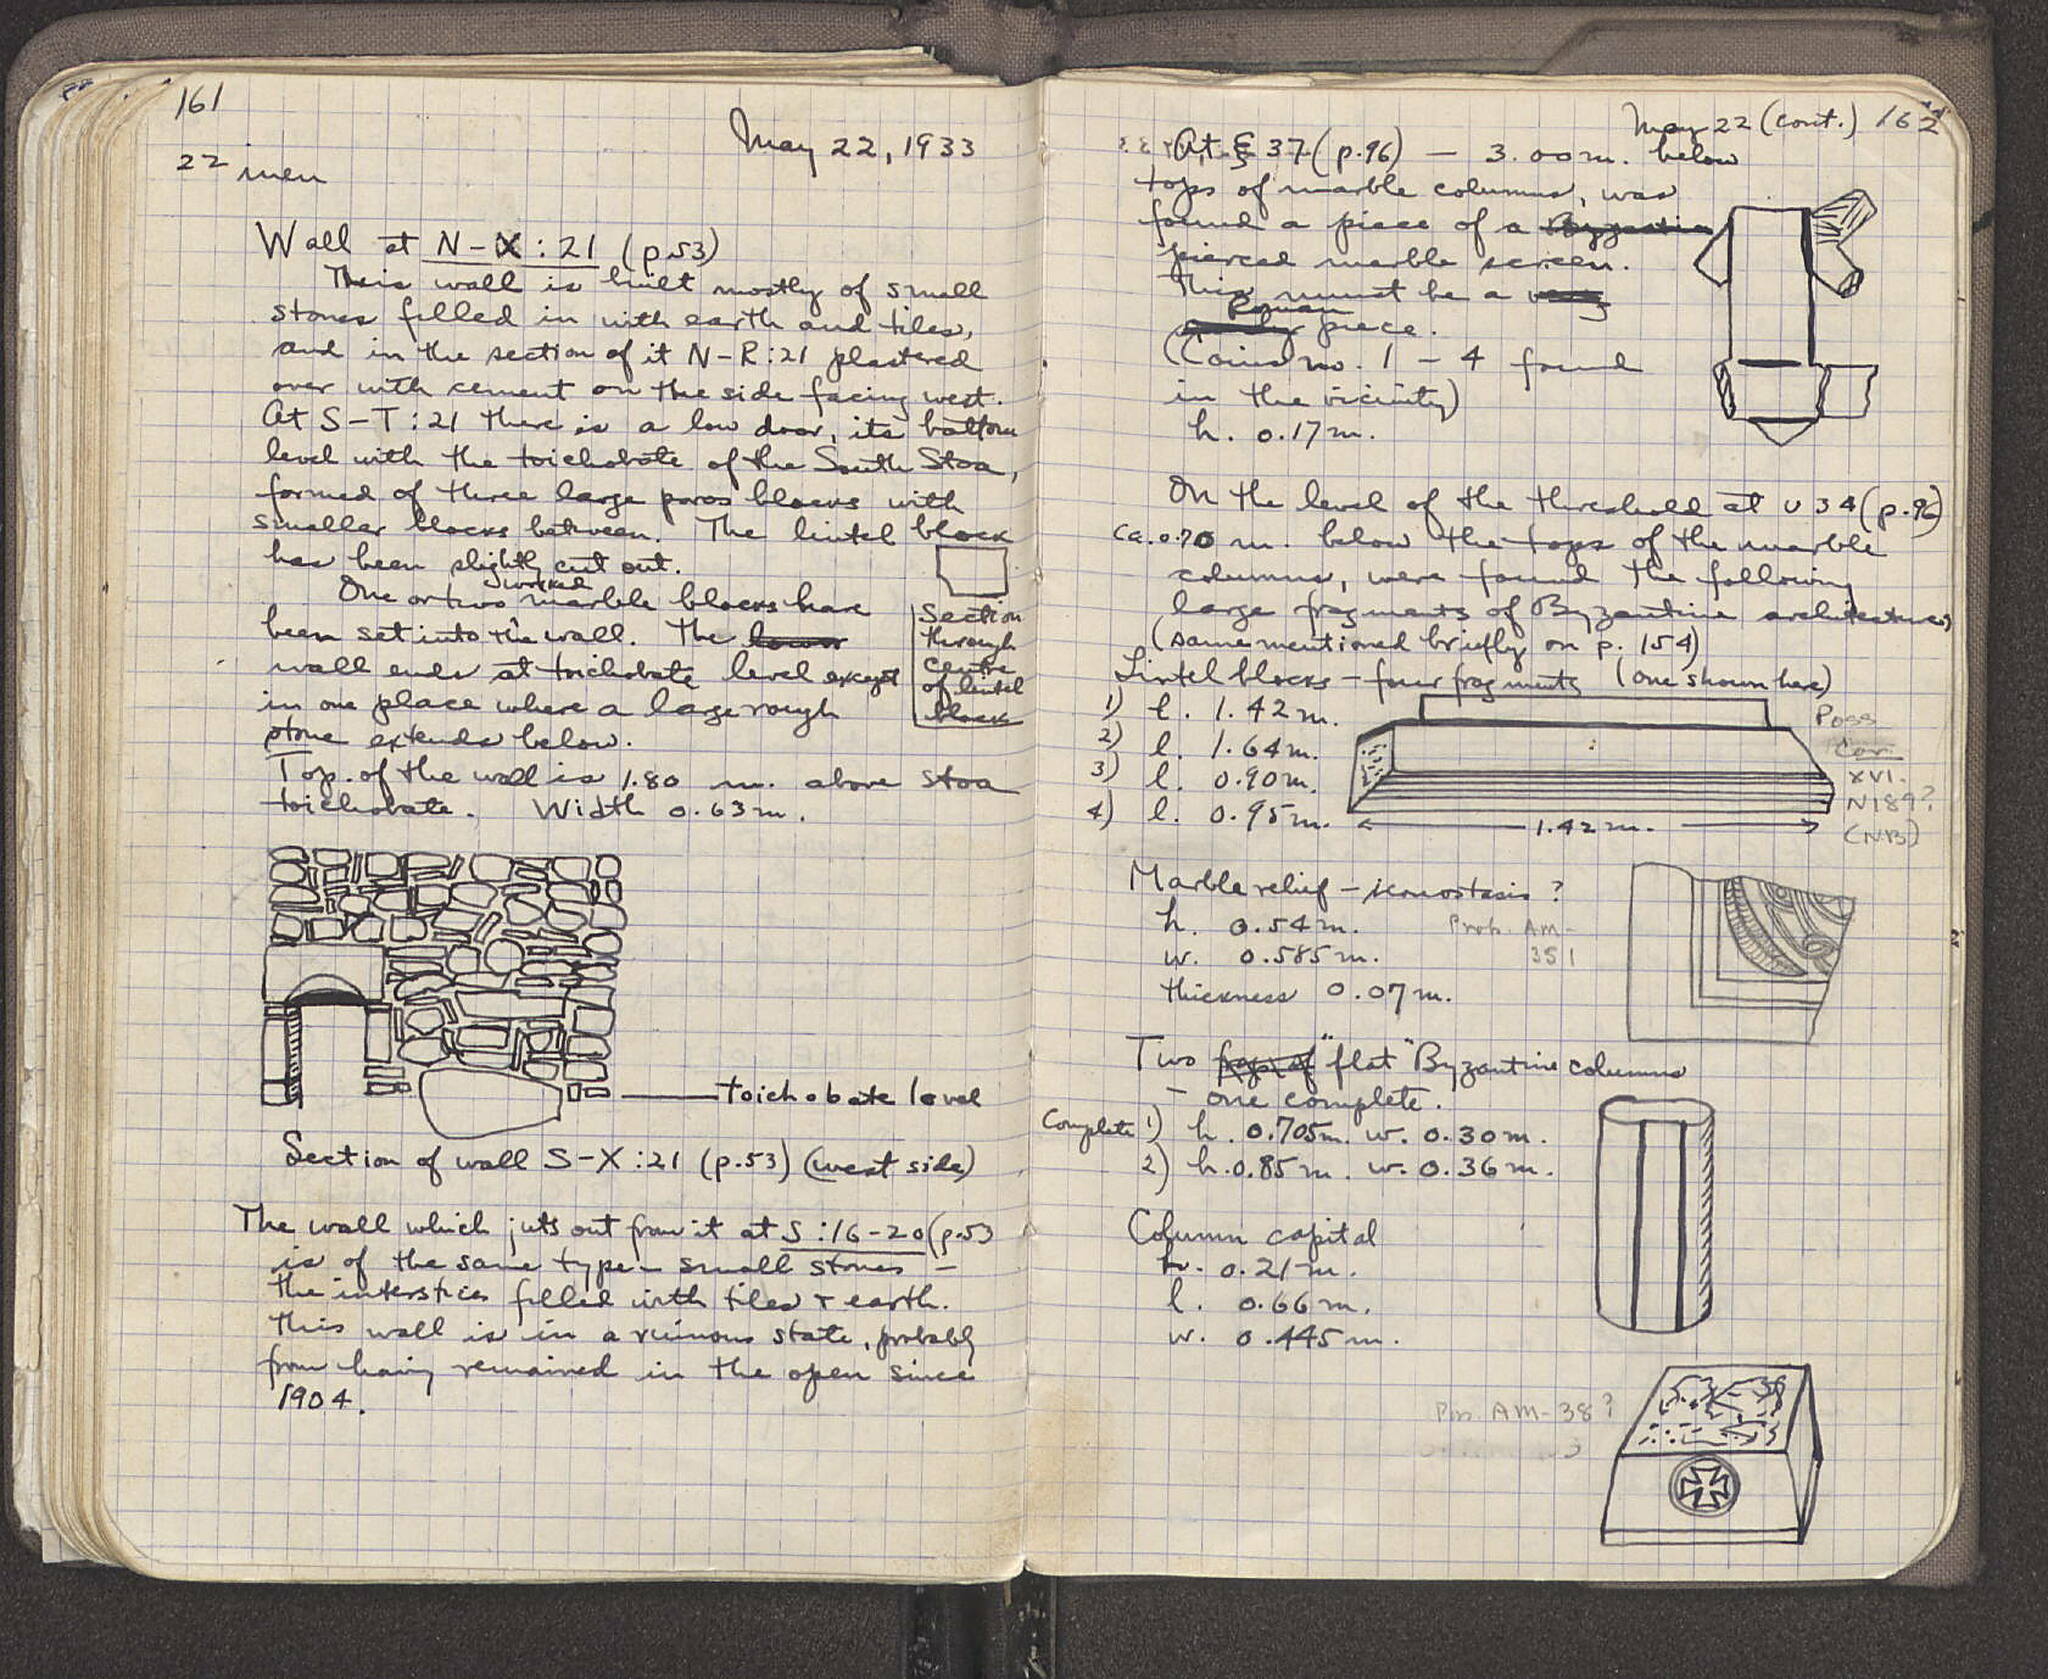 161
May 22, 1933
22 men
Wall at N-X:21 (p.53)
This wall is built mostly of small
stones filled in with earth and tiles,
and in the section of it N-R:21 plastered
over with cement on the side facing west.
At S-T:21 there is a low door, its bottom
level with the toichobate of the South Stoa,
formed of three large poros blocks with
smaller blocks between. The lintel block
has been slightly cut out.
One or two worked marble blocks have
been set into the wall. The
wall ends at toichobate level except
in one place where a large rough
stone extends below.
Section
through
centre
of lintel
block
Top of the wall is 1.80 m. above Stoa
toichobate. Width 0.63 m.
toichobate level
Section of wall S-X:21 (p.53) (west side)
The wall which juts out from it at S:16-20 (p.53
is of the same type - small stones -
the interstices filled with tiles + earth.
This wall is in a ruinous state, probably
from having remained in the open since
1904.
May 22 (cont.) 162
At ξ 37 (p.96) — 3.00 m. below
tops of marble columns, was
found a piece of a Byzantine
pierced marble screen.
This must be a
Roman
piece.
(Coins no. 1 - 4 found
in the vicinity)
h. 0.17 m.
On the level of the threshold at υ 34 (p.96)
ca. 0.70 m. below the tops of the marble
columns, were found the following
large fragments of Byzantine architecture
(some mentioned briefly on p. 154)
Lintel blocks - four fragments (one shown here)
1) l. 1.42 m.
2) l. 1.64 m.
3) l. 0.90 m.
4) l. 0.95 m.
1.42 m.
Poss
Cor.
XVI.
N189?
(NB)
Marble relief - iconostasis ?
h. 0.54 m.
w. 0.585 m.
thickness 0.07 m.
Prob. AM-
351
Two frgs. of "flat" Byzantine columns
- one complete.
Complete 1) h. 0.705 m. w. 0.30 m.
2) h. 0.85 m. w. 0.36 m.
Column capital
h. 0.21 m.
l. 0.66 m.
w. 0.445 m.
Pos. AM-38?